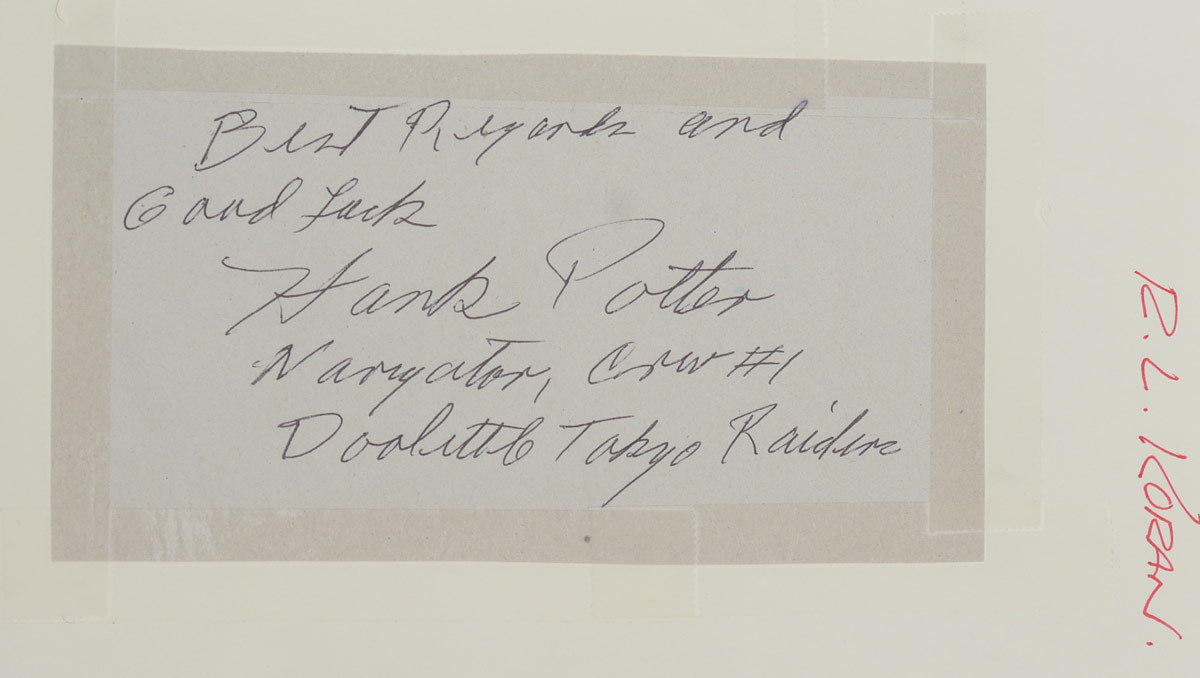 Best Regards and
Good Luck
Hank Potter
Navigator, Crew #1
Doolittle Tokyo Raiders
R. L. KORAN.